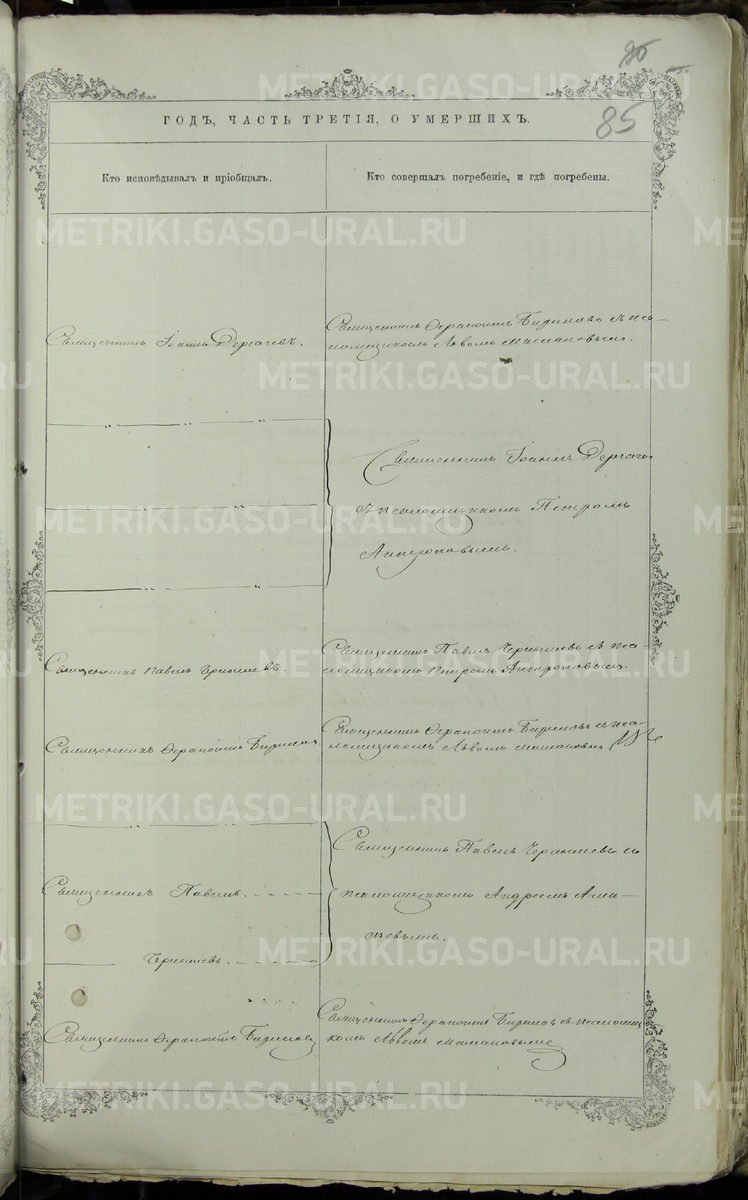 85
ГОДЪ, ЧАСТЬ ТРЕТІЯ, О УМЕРШИХЪ.
Кто исповѣдывалъ и пріобщалъ.
Кто совершалъ погребеніе, и гдѣ погребены.
Священникъ Іоаннъ Дергачевъ.
Священникъ Ферапонтъ Бирюковъ съ пса-
ломщикомъ Львомъ
Священникъ Іоаннъ Дергачевъ
съ псаломщикомъ Петромъ
Антроповымъ.
Священникъ Павелъ Чернышевъ.
Священникъ Павелъ Чернышевъ съ пса-
ломщикомъ Петромъ Антроповымъ.
Священникъ Ферапонтъ Бирюковъ
Священникъ Ферапонтъ Бирюковъ съ пса-
ломщикомъ Львомъ
Священникъ Павелъ Чернышевъ съ
псаломщикомъ Андреемъ
Священникъ Павелъ
Чернышевъ.
Священникъ Ферапонтъ Бирюковъ
Священникъ Ферапонтъ Бирюковъ съ псаломщи-
комъ Львомъ
METRIKI.GASO-URAL.RU